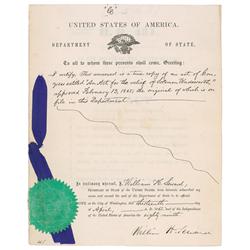 UNITED STATES OF AMERICA.
DEPARTMENT OF STATE.
To all to whom these presents shall come, Greeting:
I certify, That annexed is a true copy of an act of Con-
gress entitled "An Act for the relief of Wadsworth,
approved February 13, 1865, the original of which is on
file in this Department.
In testimony whereof, I, William H. Seward,
SECRETARY OF STATE of the United States, have hereunto subscribed my
name and caused the seal of the Department of State to be affixed.
at the City of Washington, this thirteenth day of
April, and of the
Independence of the United States of America the eighty ninth.
William H. Seward